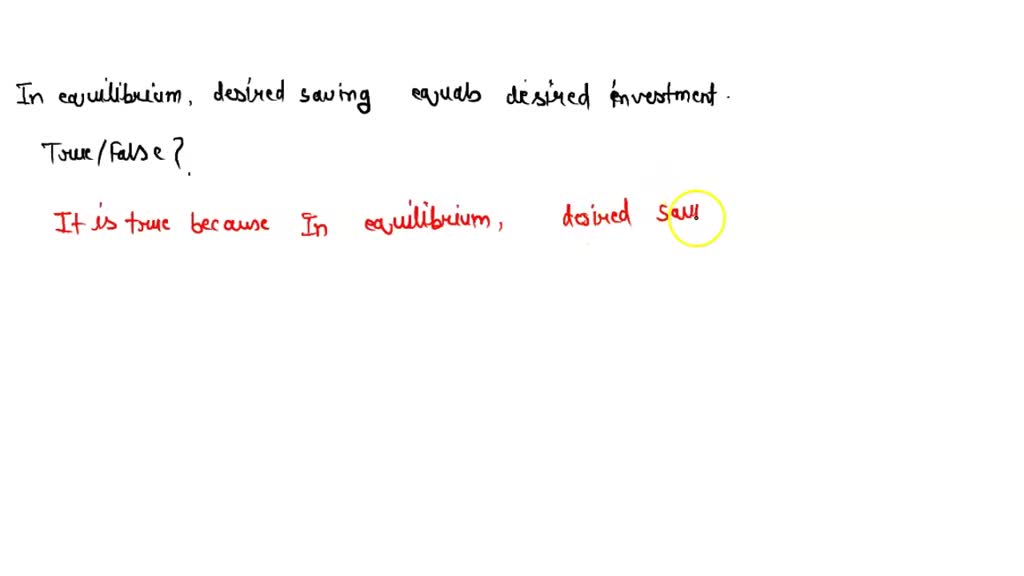 In equilibrium, desired saving equals desired investment.
True/False?
It is true because In equilibrium, desired sav